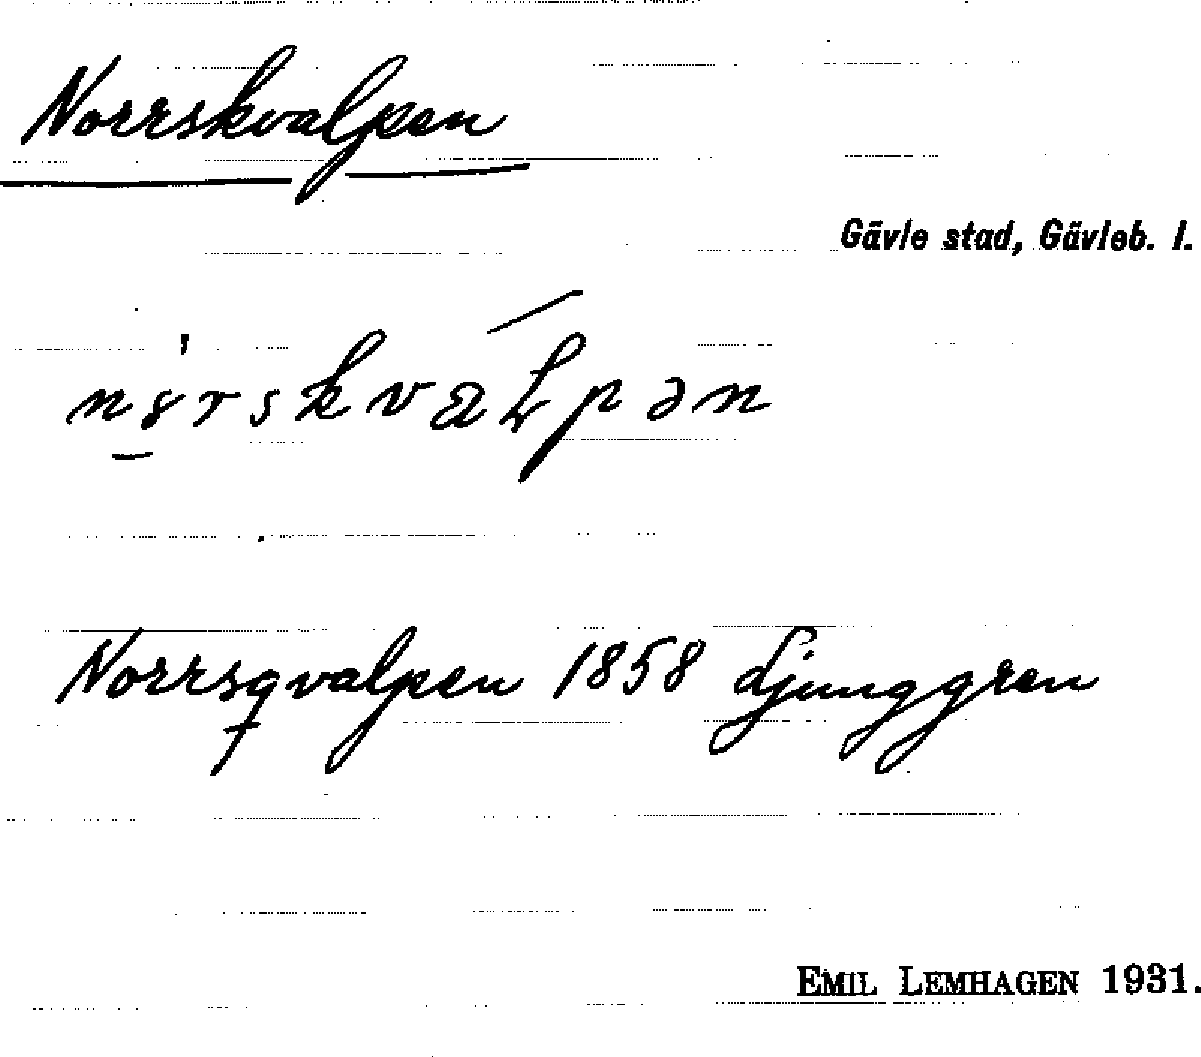 Norrskvalpen
Gävle stad, Gävleb. l.
Norrsqvalpen 1858 Ljunggren
EMIL LEMHAGEN 1931.